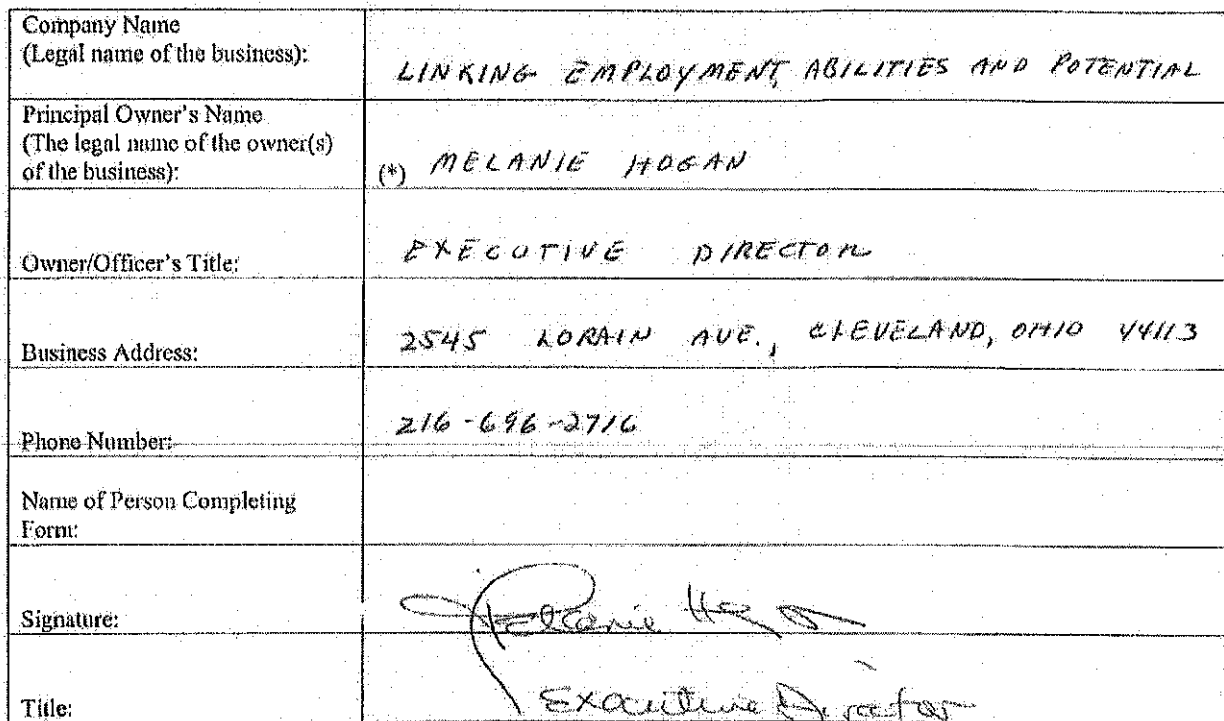 Company Name
(Legal name of the business):
LINKING EMPLOYMENT, ABILITIES AND POTENTIAL
Principal Owner's Name
(The legal name of the owner(s)
of the business):
(*) MELANIE HOGAN
Owner/Officer's Title:
EXECUTIVE DIRECTOR
Business Address:
2545 LORAIN AVE., CLEVELAND, OHIO 44113
Phone Number:
216-696-2716
Name of Person Completing
Form:
Signature:
Melanie Hogan
Title:
Executive Director